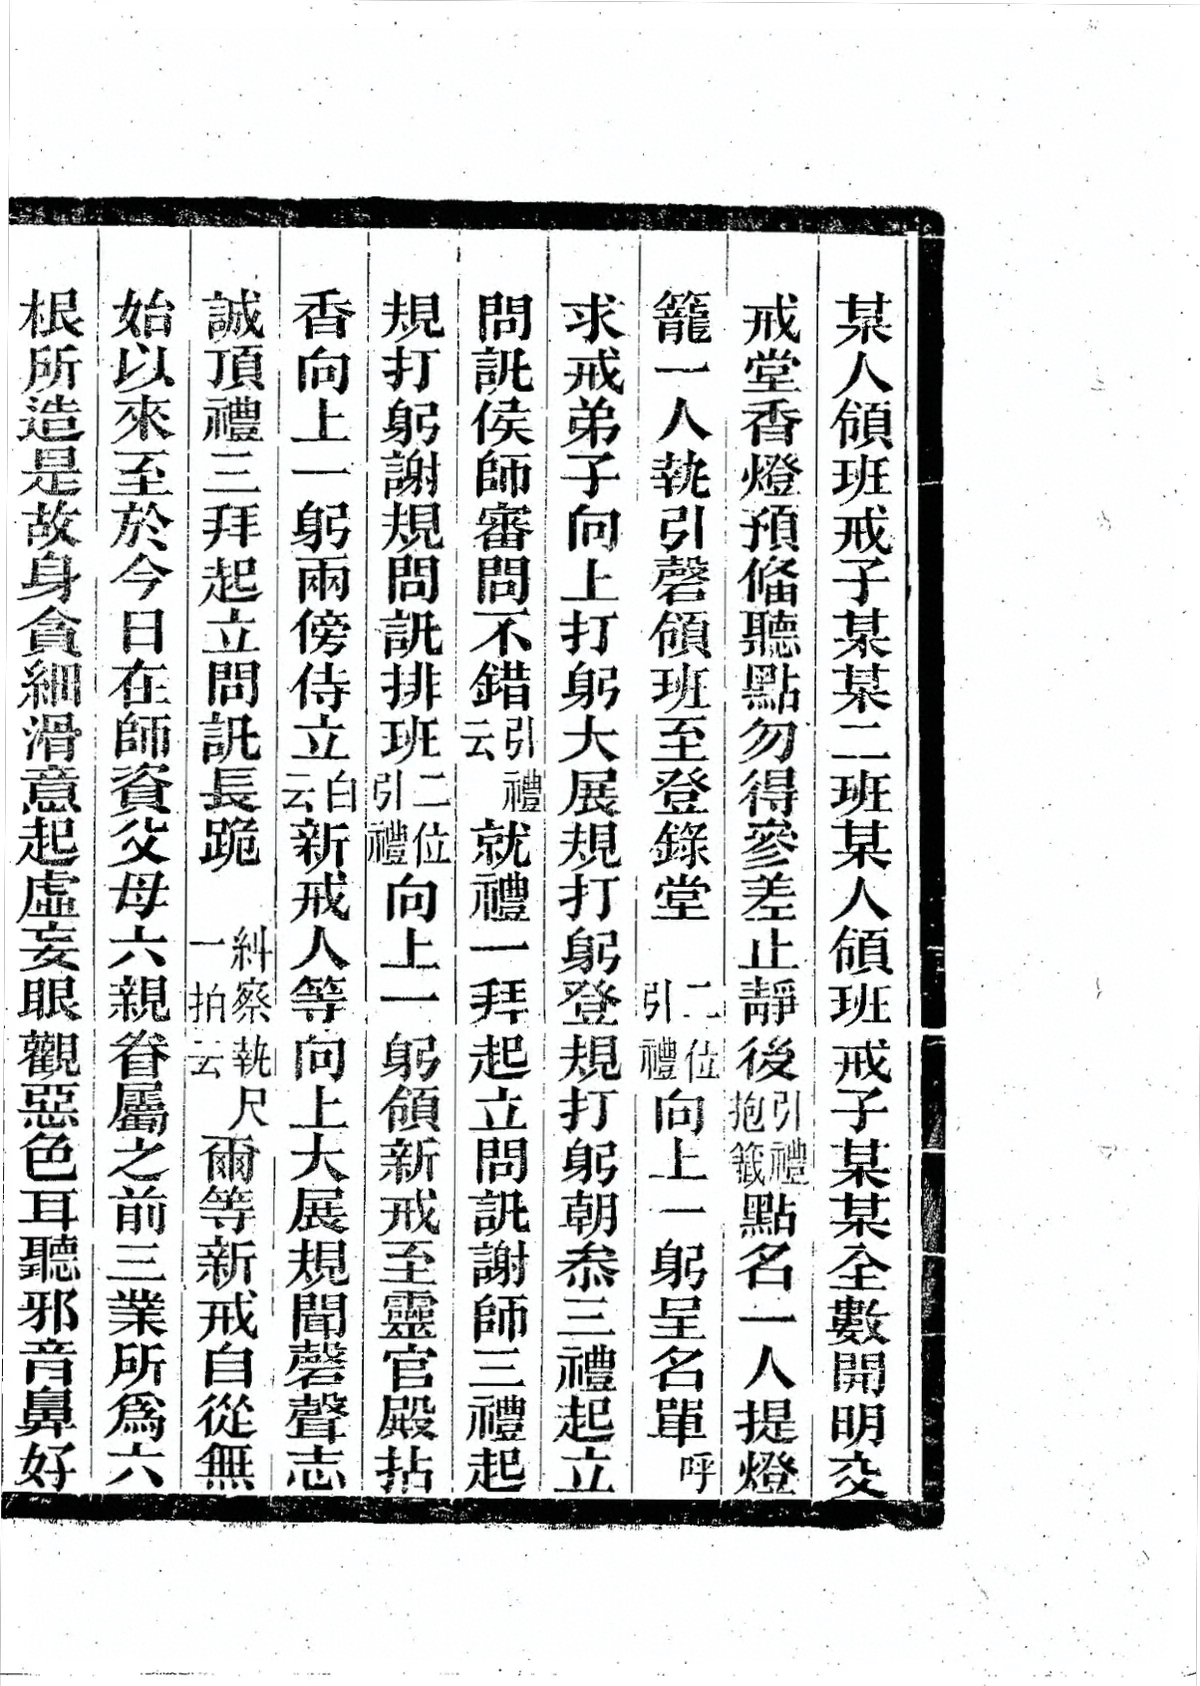 某人領班戒子某某二班某人領班戒子某某全數開明交
戒堂香燈預俻聽點勿得參差止靜後引禮抱籤點名一人提燈
籠一人執引磬領班至登錄堂二位引禮向上一躬呈名單呼
求戒弟子向上打躬大展規打躬登規打躬朝叅三禮起立
問訊侯師審問不錯引禮云就禮一拜起立問訊謝師三禮起
規打躬謝規問訊排班二位引禮向上一躬領新戒至靈官殿拈
香向上一躬兩傍侍立白云新戒人等向上大展規聞磬聲志
誠頂禮三拜起立問訊長跪糾察執尺一拍云爾等新戒自從無
始以來至於今日在師資父母六親眷屬之前三業所爲六
根所造是故身貪細滑意起虛妄眼觀惡色耳聽邪音鼻好